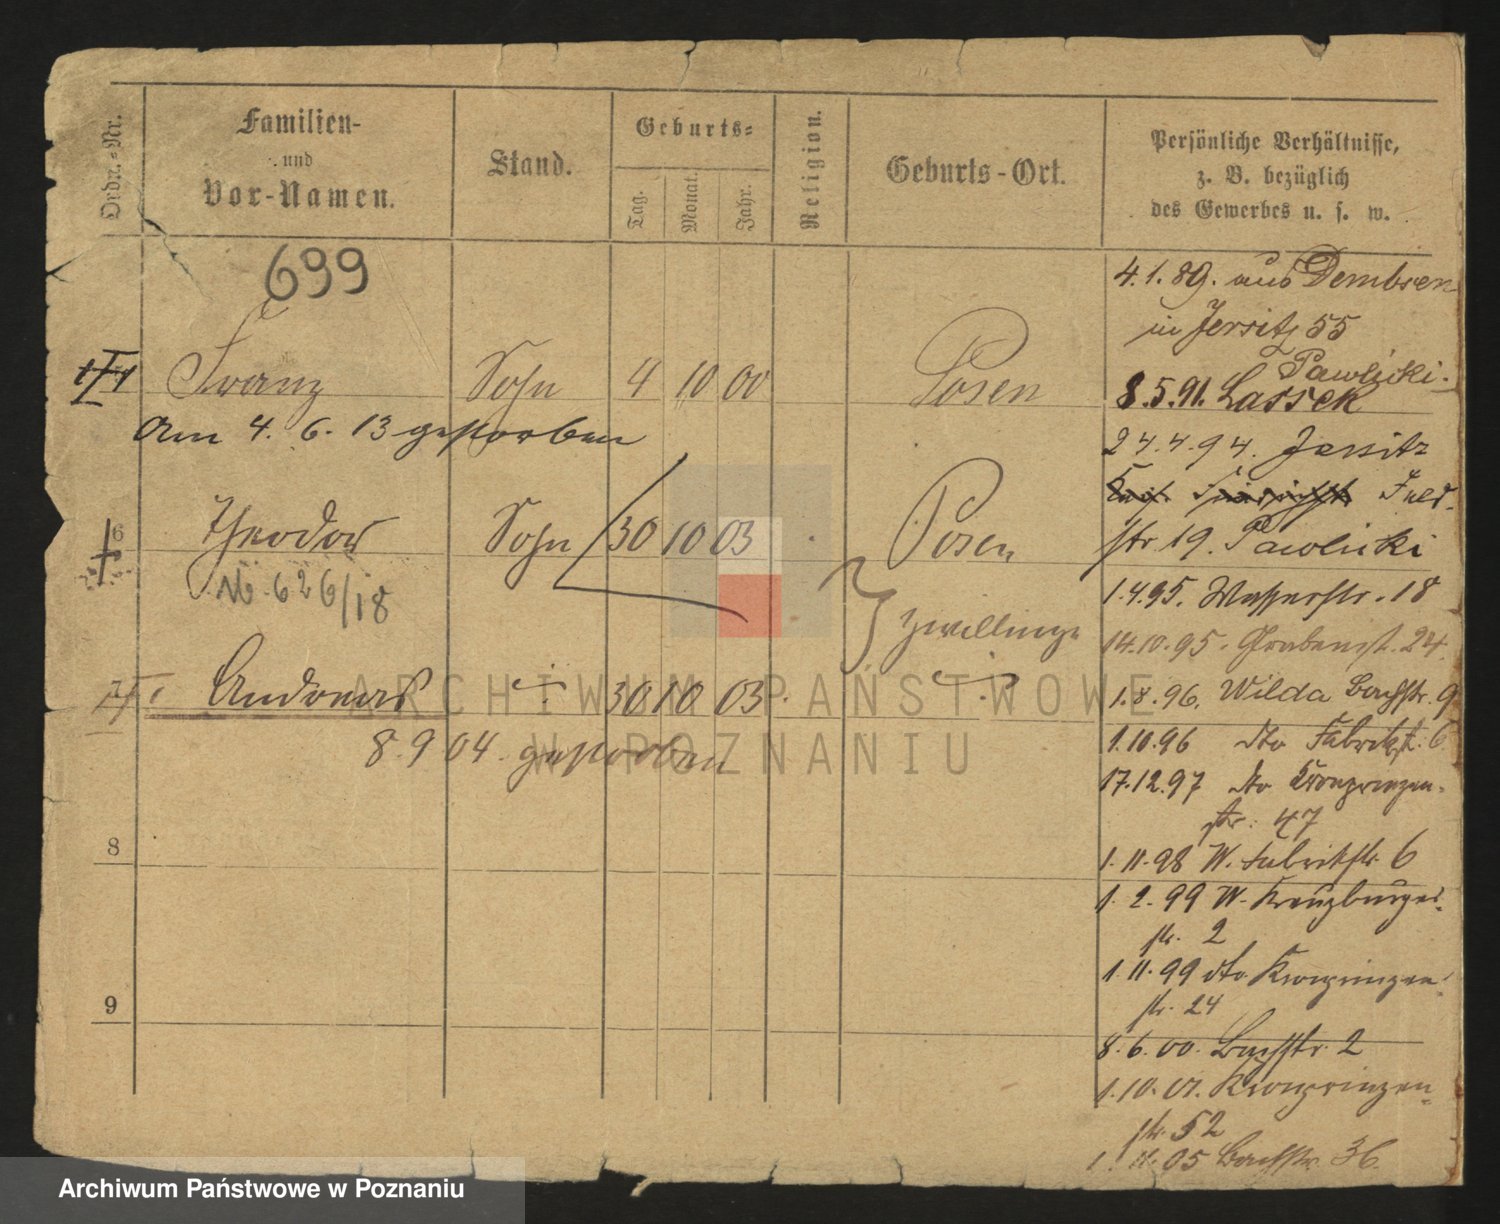 Ordn.-Nr.
Familien-
und
Vor-Namen.
Stand.
Geburts-
Tag.
Monat.
Jahr.
Religion.
Geburts-Ort.
Persönliche Verhältnisse,
z. B. bezüglich
des Gewerbes u. s. w.
699
Franz Sohn 4 10 00 Posen
am 4. 6. 13 gestorben
6 Theodor Sohn 30 10 03 Posen
No 626/18
Zwillinge
7 Andreas 30 10 03
8. 9 04. gestorben
8
9
4.1.89. aus Dembsen
in Jersitz 55
Pawlicki.
8.5.91. Lassek
24.4.94. Jersitz
Feld-
str 19. Pawlicki
1.4.95. Wasserstr. 18
14.10.95. Grabenst. 24
1.8.96. Wilda Bachstr. 9
1.10.96 dto Fabrikst. 6
17.12.97 dto Kronprinzen-
str. 47
1.11.98 W. Fabrikstr. 6
1.2.99 W. Kreuzburger-
str. 2
1.11.99 dto Kronprinzen-
str. 24
8.6.00. Bachstr. 2
1.10.01. Kronprinzen-
str. 52
1.11.05 Bachstr. 36.
ARCHIWUM PAŃSTWOWE
W POZNANIU
Archiwum Państwowe w Poznaniu